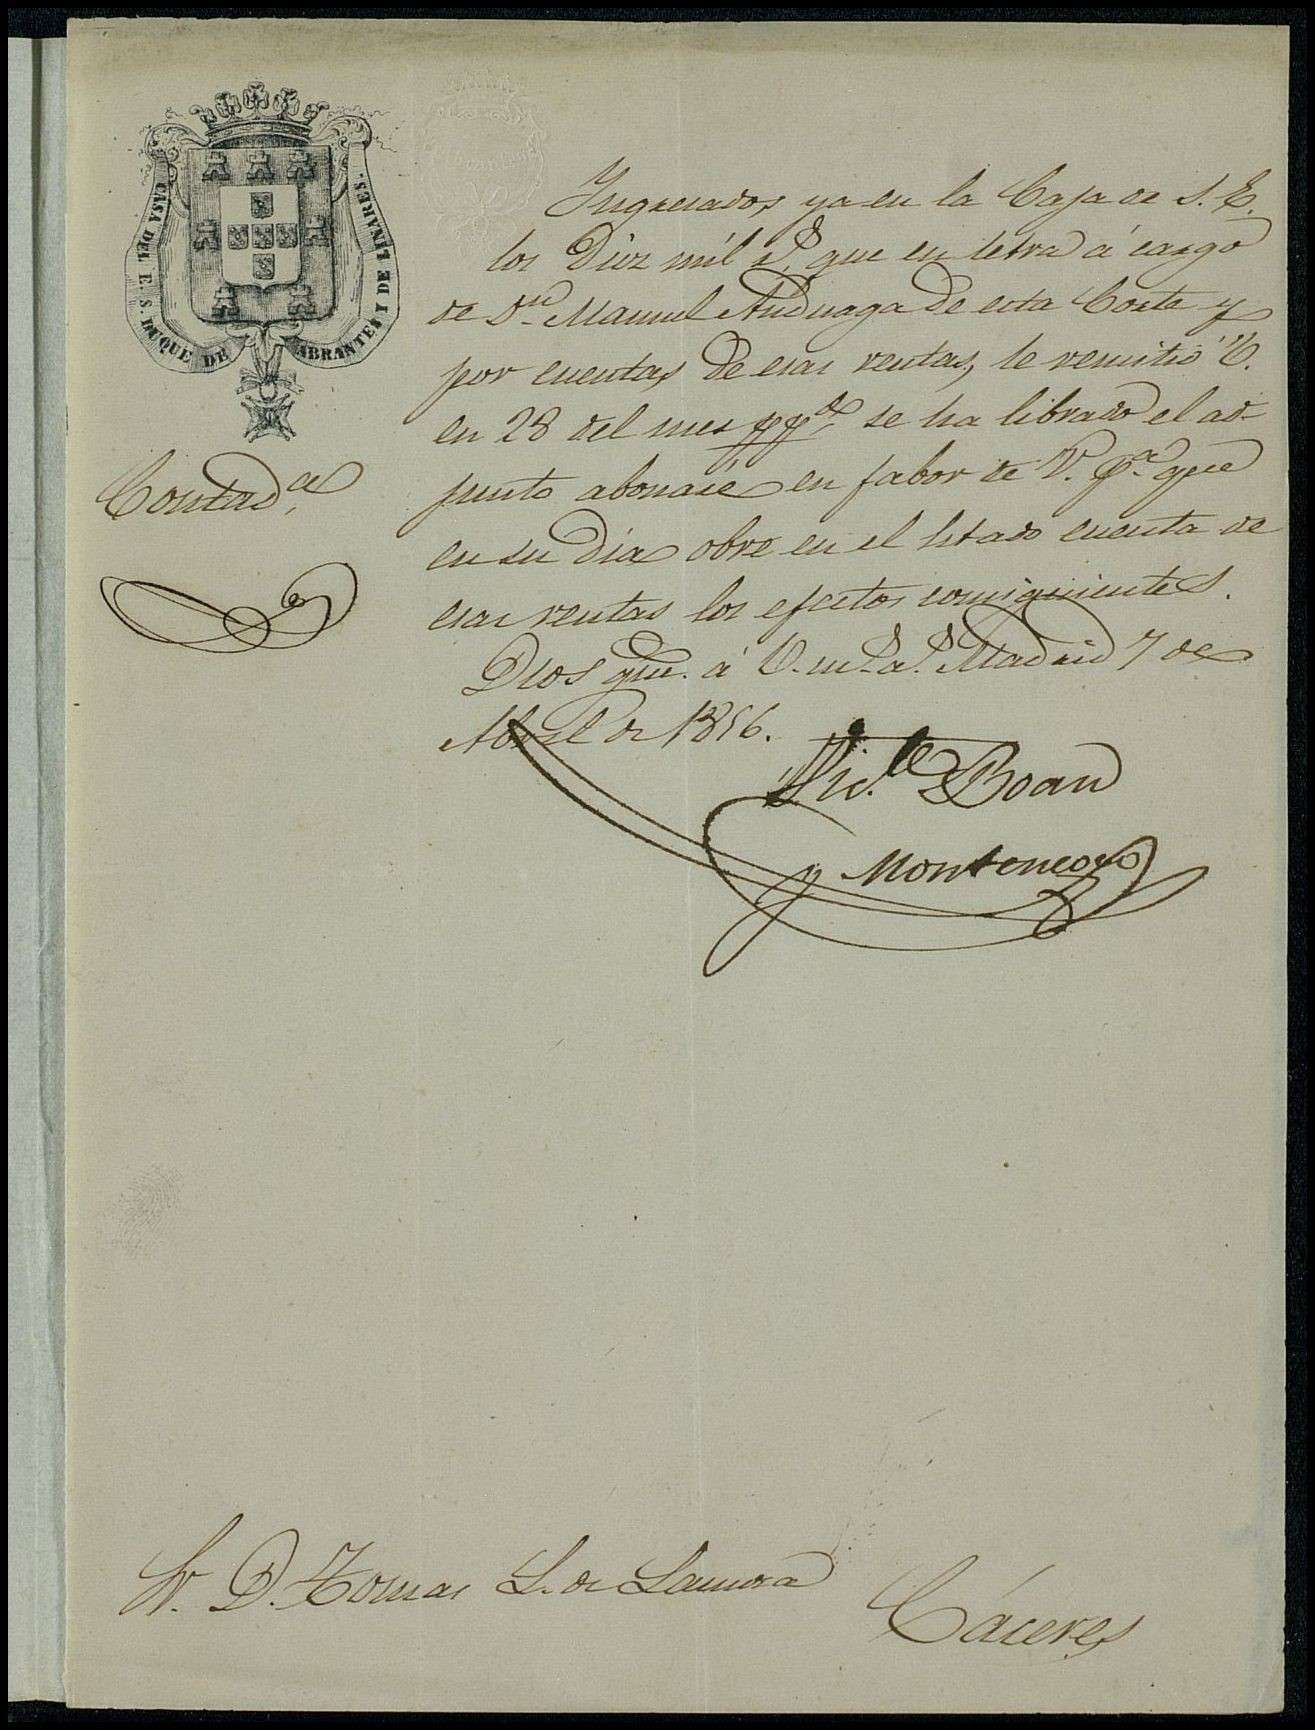 CASA DEL E. S. DUQUE DE ABRANTES I DE LINARES.
Contad.ª
Ingresados ya en la Caja de S. E.
los Diez mil r.ˢ que en letra á cargo
de D.ⁿ Manuel Anduaga de esta Corte y
por cuentas de esas rentas, le remitió V.
en 28 del mes pp.ᵈᵒ se ha librado el ad-
junto abonaré en fabor de V. p.ª que
en su dia obre en el Estado cuenta de
esas rentas los efectos consiguientes.
Dios gue. á V. m.ˢ a.ˢ Madrid 7 de
Abril de 1856.
Boan
y Montenegro
Sr. D. Tomas L. de Lamora
Cáceres